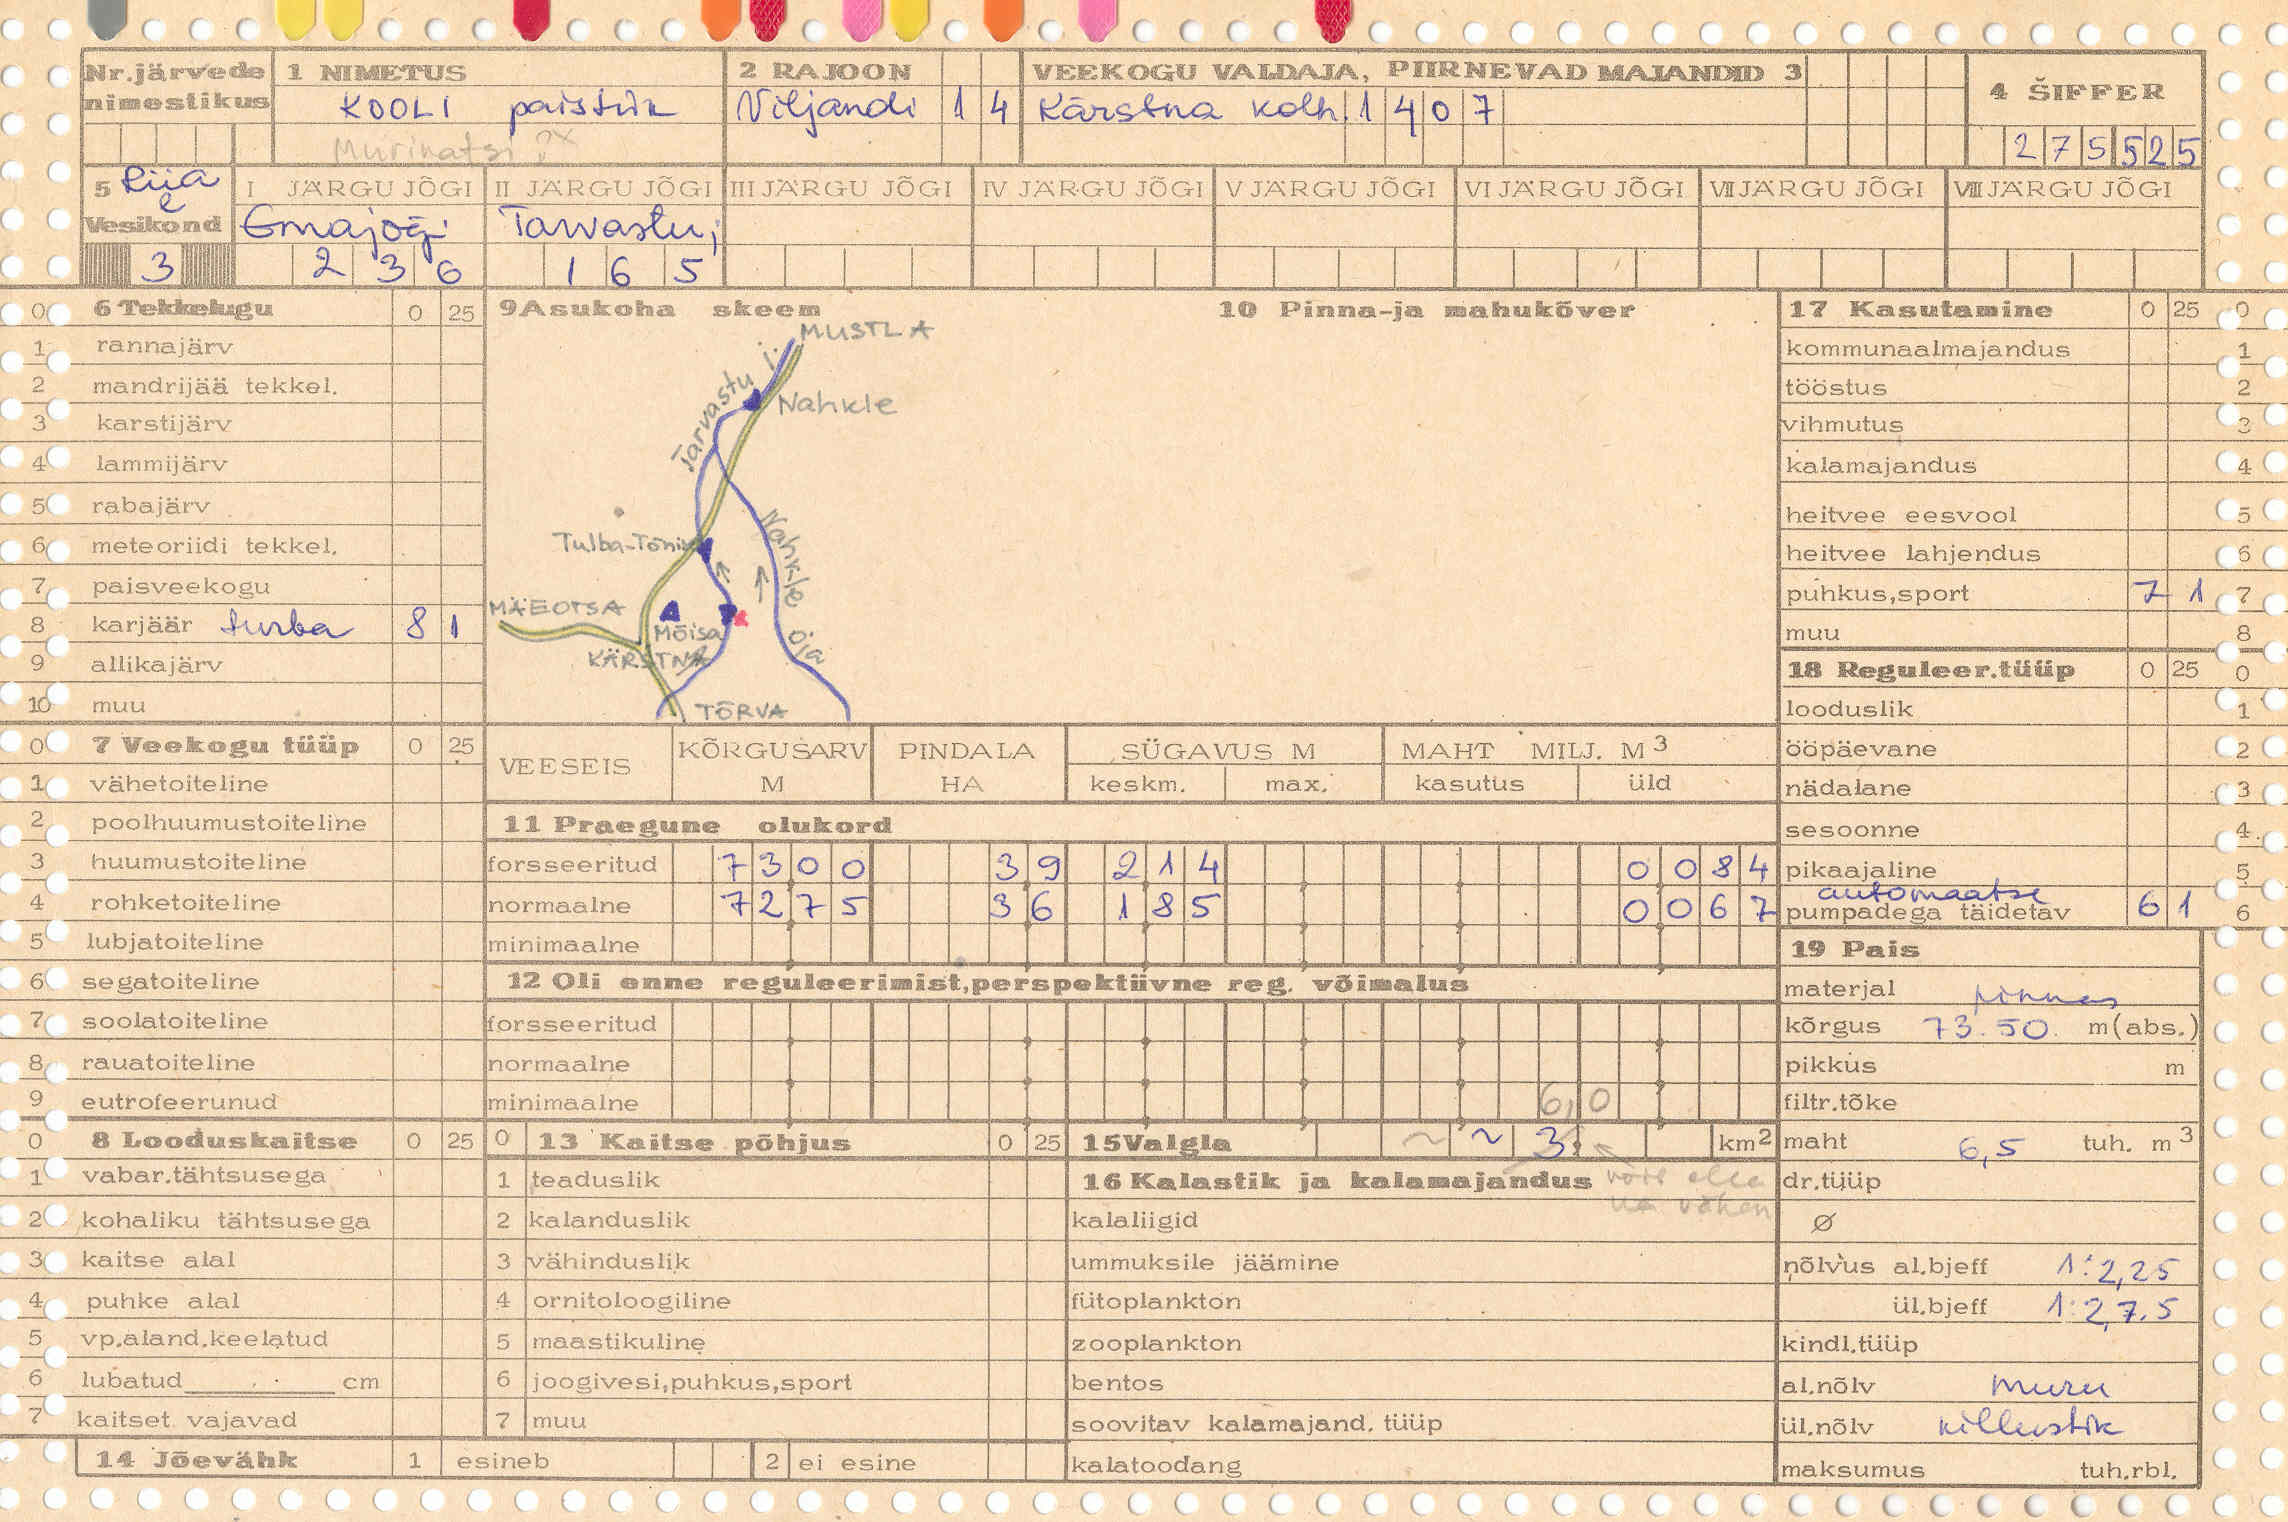 Nr.järvede nimestikus
1 NIMETUS
KOOLI paistiik
Murikatsi ?x
2 RAJOON
Viljandi 1 4
VEEKOGU VALDAJA, PIIRNEVAD MAJANDID 3
Kärstna kolh. 1 4 0 7
4 ŠIFFER
2 7 5 5 2 5
5 Riia
Vesikond
3
I JÄRGU JÕGI
Emajõgi
2 3 6
II JÄRGU JÕGI
Tarvastu j
1 6 5
III JÄRGU JÕGI
IV JÄRGU JÕGI
V JÄRGU JÕGI
VI JÄRGU JÕGI
VII JÄRGU JÕGI
VIII JÄRGU JÕGI
0 6 Tekkelugu 0 25
1 rannajärv
2 mandrijää tekkel.
3 karstijärv
4 lammijärv
5 rabajärv
6 meteoriidi tekkel.
7 paisveekogu
8 karjäär turba 8 1
9 allikajärv
10 muu
9 Asukoha skeem
MUSTLA
Tarvastu j.
Nahkle
Tulba-Tõnis
Nahkle oja
MÄEOTSA
Mõisa
KÄRSTNA
TÕRVA
10 Pinna-ja mahukõver
17 Kasutamine 0 25 0
kommunaalmajandus 1
tööstus 2
vihmutus 3
kalamajandus 4
heitvee eesvool 5
heitvee lahjendus 6
puhkus,sport 7 1 7
muu 8
18 Reguleer.tüüp 0 25 0
looduslik 1
ööpäevane 2
nädalane 3
sesoonne 4
pikaajaline 5
automaatse
pumpadega täidetav 6 1 6
0 7 Veekogu tüüp 0 25
1 vähetoiteline
2 poolhuumustoiteline
3 huumustoiteline
4 rohketoiteline
5 lubjatoiteline
6 segatoiteline
7 soolatoiteline
8 rauatoiteline
9 eutrofeerunud
VEESEIS
KÕRGUSARV M
PINDALA HA
SÜGAVUS M
keskm. max.
MAHT MILJ. M3
kasutus üld
11 Praegune olukord
forsseeritud 7 3 0 0 3 9 2 1 4 0 0 8 4
normaalne 7 2 7 5 3 6 1 8 5 0 0 6 7
minimaalne
12 Oli enne reguleerimist,perspektiivne reg. võimalus
forsseeritud
normaalne
minimaalne
6,0
19 Pais
materjal pinnas
kõrgus 73.50 m(abs.)
pikkus m
filtr.tõke
maht 6,5 tuh. m3
dr.tüüp
ø
nõlvus al.bjeff 1:2,25
ül.bjeff 1:2,7.5
kindl.tüüp
al.nõlv muru
ül.nõlv killustik
maksumus tuh.rbl.
0 8 Looduskaitse 0 25
1 vabar.tähtsusega
2 kohaliku tähtsusega
3 kaitse alal
4 puhke alal
5 vp.aland.keelatud
6 lubatud______ cm
7 kaitset vajavad
0 13 Kaitse põhjus 0 25
1 teaduslik
2 kalanduslik
3 vähinduslik
4 ornitoloogiline
5 maastikuline
6 joogivesi,puhkus,sport
7 muu
15 Valgla ~ ~ 3 km2
võib olla
ka vähem
16 Kalastik ja kalamajandus
kalaliigid
ummuksile jäämine
fütoplankton
zooplankton
bentos
soovitav kalamajand. tüüp
kalatoodang
14 Jõevähk 1 esineb 2 ei esine